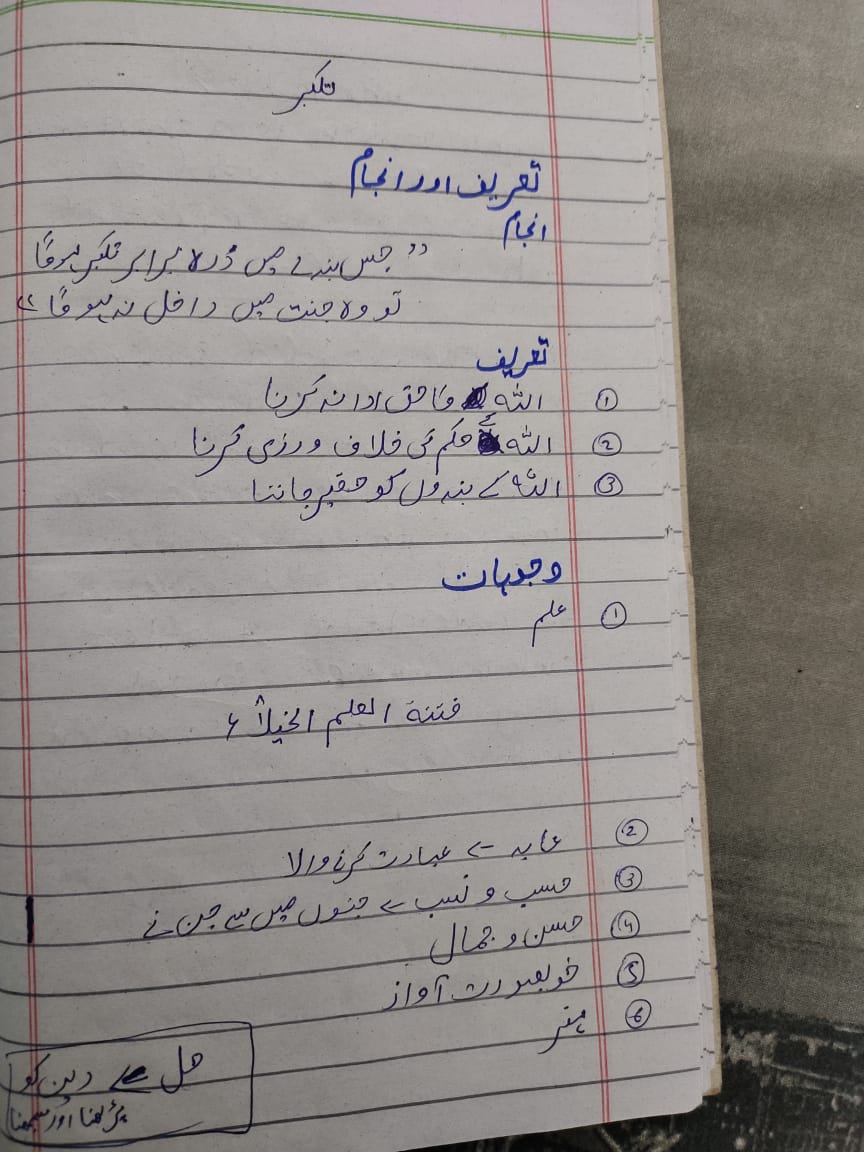 تکبر
تعریف اور انجام
انجام
"جس بندے میں ذرہ برابر تکبر ہوگا
تو وہ جنت میں داخل نہ ہوگا"
تعریف
① اللہ کا حق ادا نہ کرنا
② اللہ کے حکم کی خلاف ورزی کرنا
③ اللہ کے بندوں کو حقیر جاننا
وجوہات
① علم
فتنة العلم الخيلاء
② عابد → عبادت کرنے والا
③ حسب و نسب → جنوں میں سے جن نے
④ حسن و جمال
⑤ خوبصورت آواز
⑥ ہنر
حل → دین کو
پڑھنا اور سمجھنا